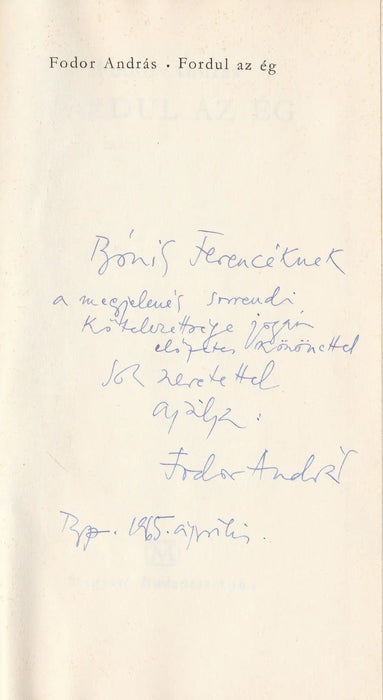 Fodor András · Fordul az ég
Bónis Ferencéknek
a megjelenés sorrendi
kötelezettsége jogán
előzetes köszönettel
Sok szeretettel
ajálja:
Fodor András
Bp. 1965. április.